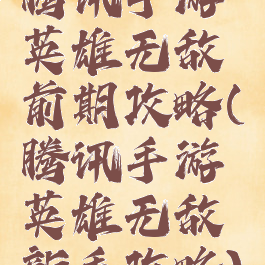 腾讯手游
英雄无敌
前期攻略(
腾讯手游
英雄无敌
新手攻略)